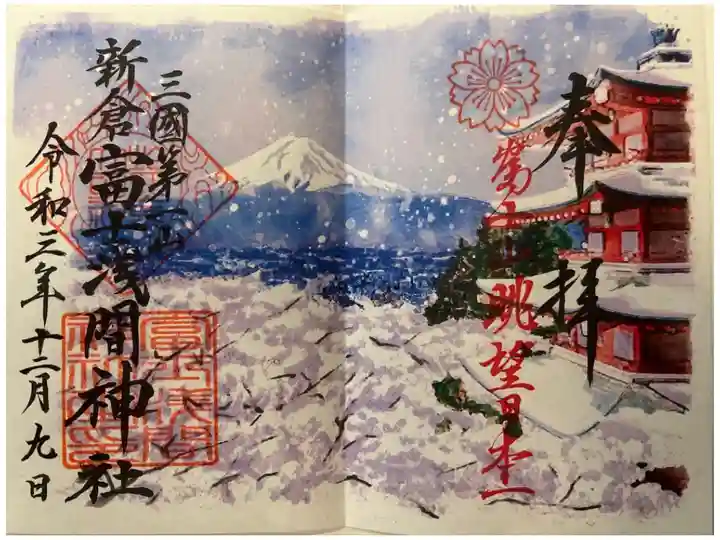 奉拝
富士眺望日本一
三國第一山
新倉富士浅間神社
令和三年十二月九日